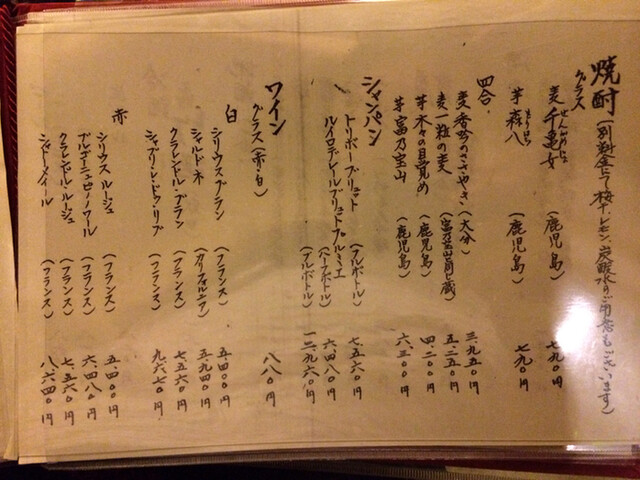 焼酎(別料金にて梅干、レモン、炭酸水のご用意もございます)
グラス
麦 千亀女 せんがめじょ (鹿児島) 七九〇円
芋 森八 もりはち (鹿児島) 七九〇円
四合
麦 麦香のささやき (大分) 三、九五〇円
麦 一粒の麦 五、二五〇円
芋 木々の目覚め (鹿児島) 四、二〇〇円
芋 富乃宝山 (鹿児島) 六、三〇〇円
シャンパン
トリボーブリュット (フルボトル) 七、五六〇円
ルイロデレールブリュットプルミエ (ハーフボトル) 六、四八〇円
(フルボトル) 一二、九六〇円
ワイン
グラス(赤・白) 八八〇円
白
シリウスブラン (フランス) 五、四〇〇円
シャルドネ (カリフォルニア) 五、九四〇円
クラレンドル・ブラン (フランス) 七、五六〇円
シャブリ・レ・ドゥ・リブ (フランス) 九、六七〇円
赤
シリウス ルージュ (フランス) 五、四〇〇円
ブルゴーニュピノノワール (フランス) 六、四八〇円
クラレンドル・ルージュ (フランス) 七、五六〇円
シャトーメイール (フランス) 八、六四〇円